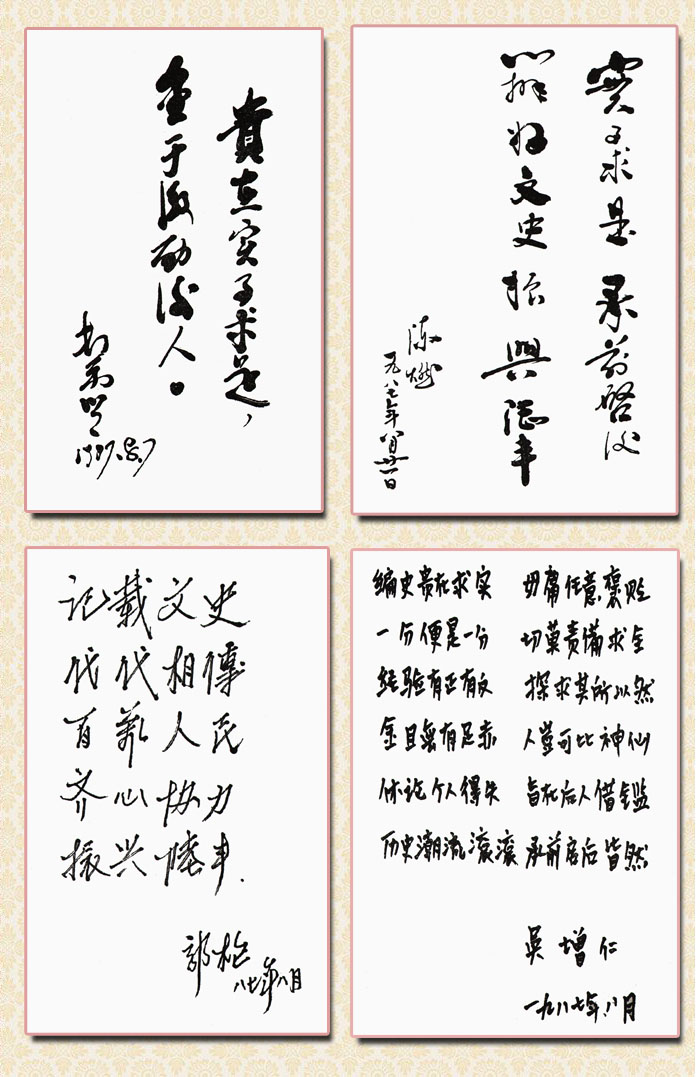 贵在实事求是，
重于激励後人。
1987.8.7
實事求是 承前啓後
辦好文史 振興陆丰
陈燃
一九八七年八月廿一日
记载文史
代代相傳
百萬人民
齐心协力
振兴陸丰.
八七年八月
编史贵在求实 毋庸任意褒贬
一分便是一分 切莫责備求全
经验有正有反 探求其所以然
金且無有足赤 人豈可比神仙
休论个人得失 旨在后人借鑑
历史潮流滚滚 承前启后皆然
吴增仁
一九八七年八月